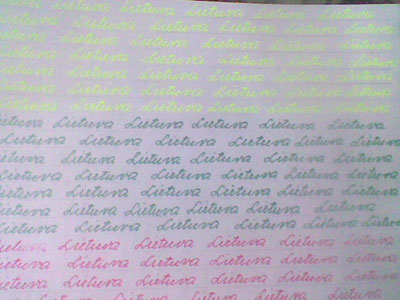 Lietuva Lietuva Lietuva Lietuva Lietuva
Lietuva Lietuva Lietuva Lietuva Lietuva Lietuva
Lietuva Lietuva Lietuva Lietuva Lietuva Lietuva
Lietuva Lietuva Lietuva Lietuva Lietuva Lietuva
Lietuva Lietuva Lietuva Lietuva Lietuva Lietuva
Lietuva Lietuva Lietuva Lietuva Lietuva Lietuva
Lietuva Lietuva Lietuva Lietuva Lietuva Lietuva
Lietuva Lietuva Lietuva Lietuva Lietuva Lietuva
Lietuva Lietuva Lietuva Lietuva Lietuva Lietuva
Lietuva Lietuva Lietuva Lietuva Lietuva
Lietuva Lietuva Lietuva Lietuva Lietuva Lietuva
Lietuva Lietuva Lietuva Lietuva Lietuva Lietuva
Lietuva Lietuva Lietuva Lietuva Lietuva
Lietuva Lietuva Lietuva Lietuva Lietuva Lietuva
Lietuva Lietuva Lietuva Lietuva Lietuva Lietuva
Lietuva Lietuva Lietuva Lietuva Lietuva
Lietuva Lietuva Lietuva Lietuva Lietuva
Lietuva Lietuva Lietuva Lietuva Lietuva